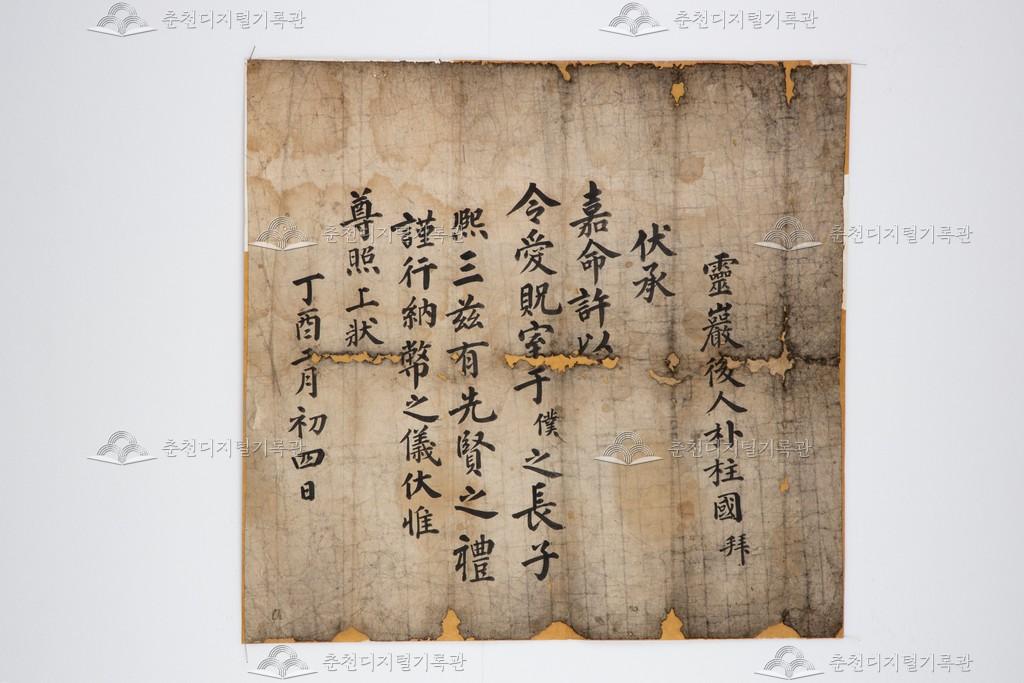 靈巖後人朴柱國拜
伏承
嘉命許以
令愛貺室于僕之長子
熙三玆有先賢之禮
謹行納幣之儀伏惟
尊照上狀
丁酉二月初四日
춘천디지털기록관
춘천디지털기록관
춘천디지털기록관
춘천디지털기록관
춘천디지털기록관
춘천디지털기록관
춘천디지털기록관
춘천디지털기록관